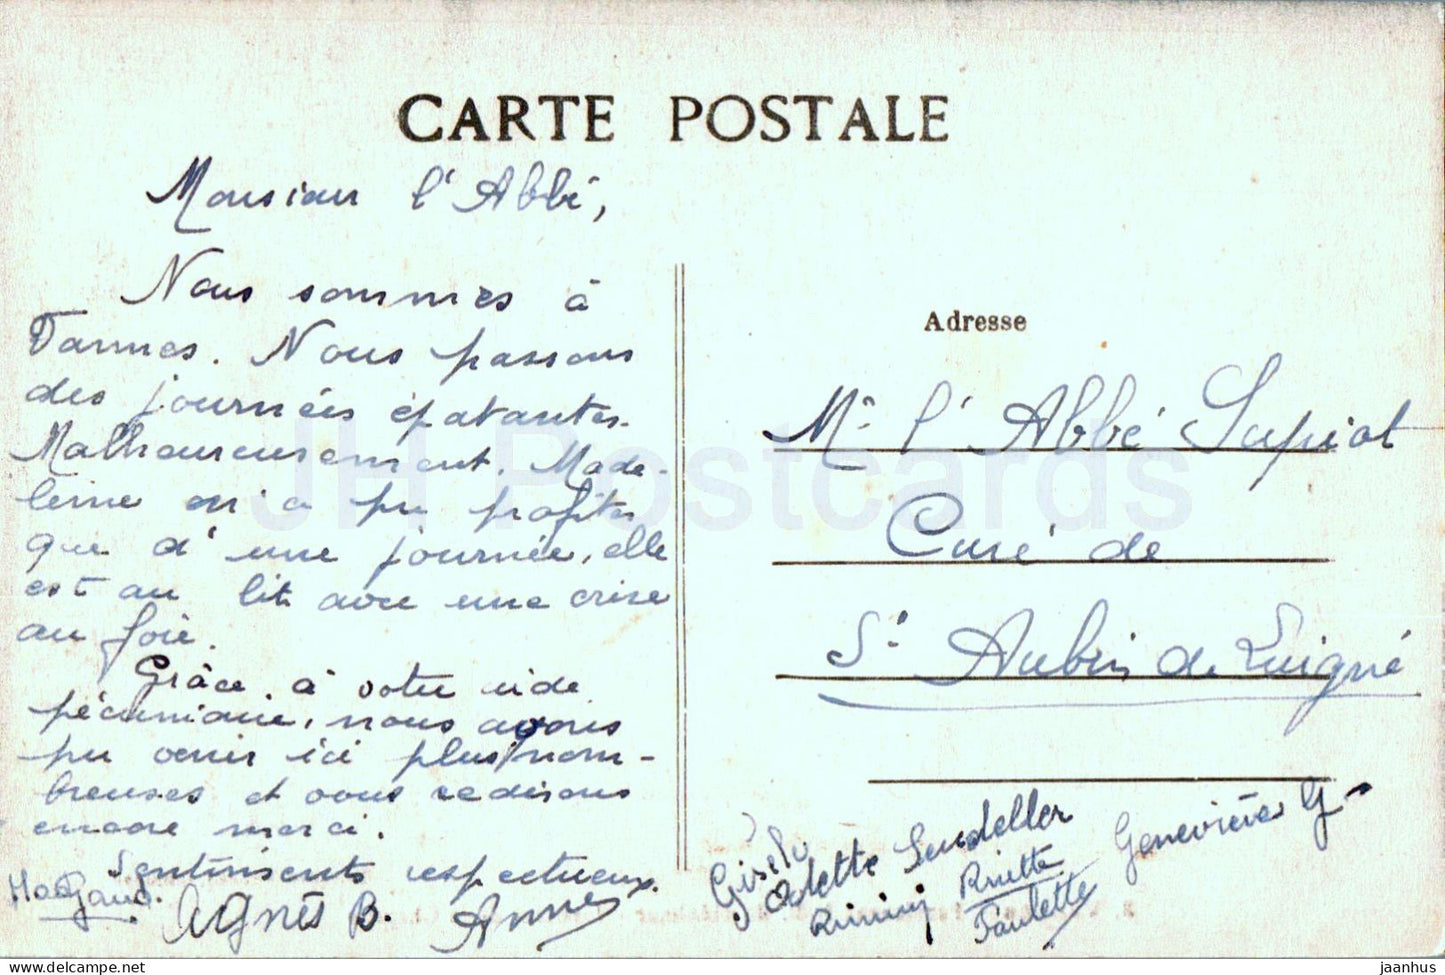 CARTE POSTALE
Monsieur l'Abbé,
Nous sommes à
Vannes. Nous passons
des journées épatantes.
Malheureusement, Made-
leine n'a pu profiter
que d'une journée, elle
est au lit avec une crise
au foie.
Grâce à votre aide
pécuniaire, nous avons
pu venir ici plus nom-
breuses et vous redisons
encore merci.
Sentiments respectueux.
Agnès B. Anne
Adresse
Mr l'Abbé Supiot
Curé de
St Aubin de Luigné
Gisèle
Odette
Geneviève G
Riquette
Paulette
JH Postcards
delcampe.net
jaanhus